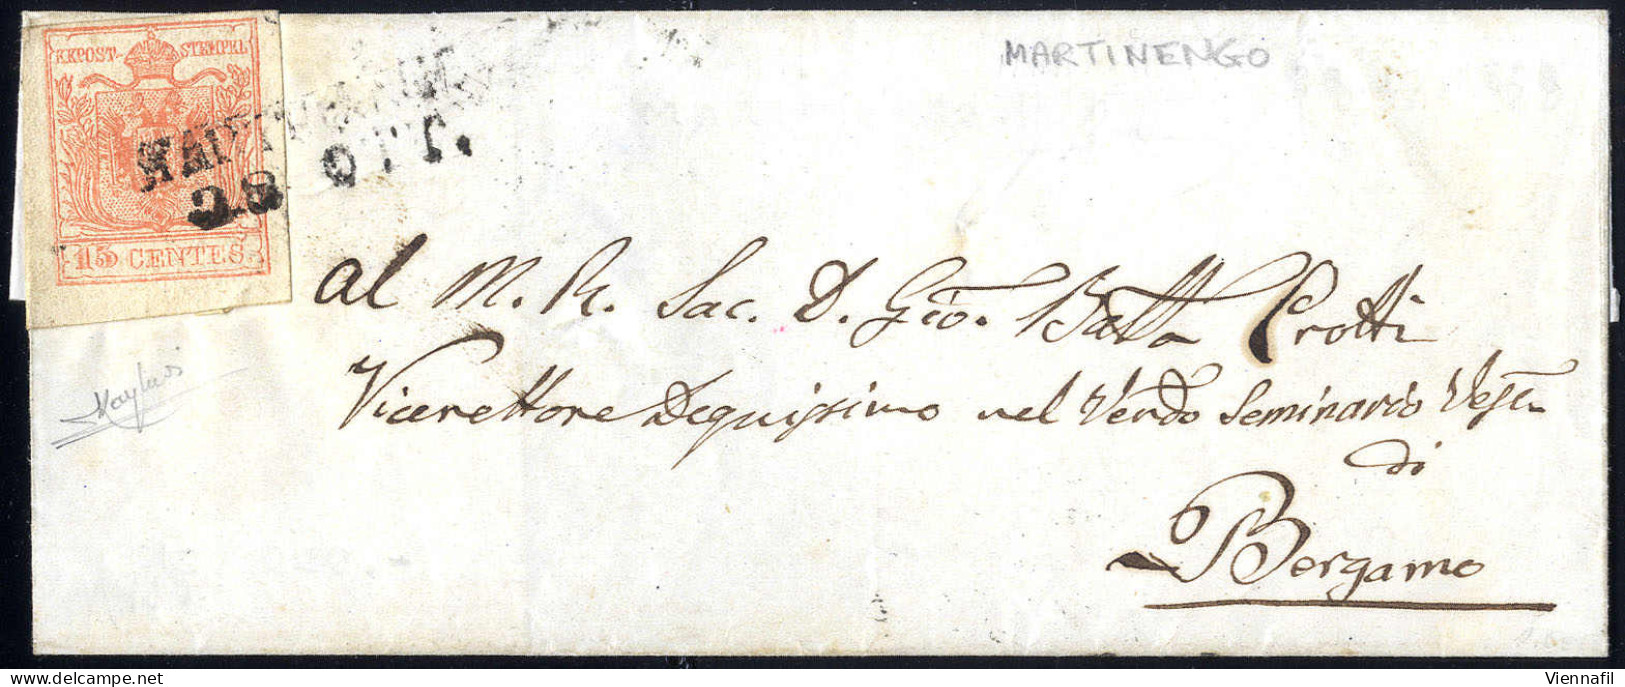 KKPOST-STEMPEL
15 CENTES
MARTINENGO
28 OTT.
MARTINENGO
al M. R. Sac. D. Gio. Batta Crotti
Vicerettore Degnissimo nel Vendo Seminario Vesc.
di
Bergamo
Viennafil